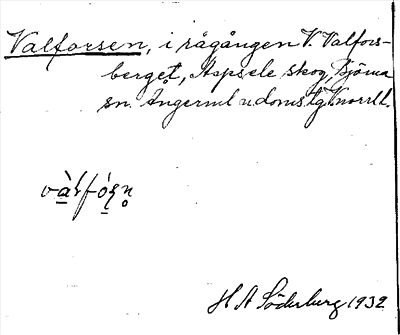 Valforsen, i rågången V. Valfors-
berget, Aspsele skog, Björna
sn. Ångerml n. doms lg. Norrl.
H A Söderberg 1932